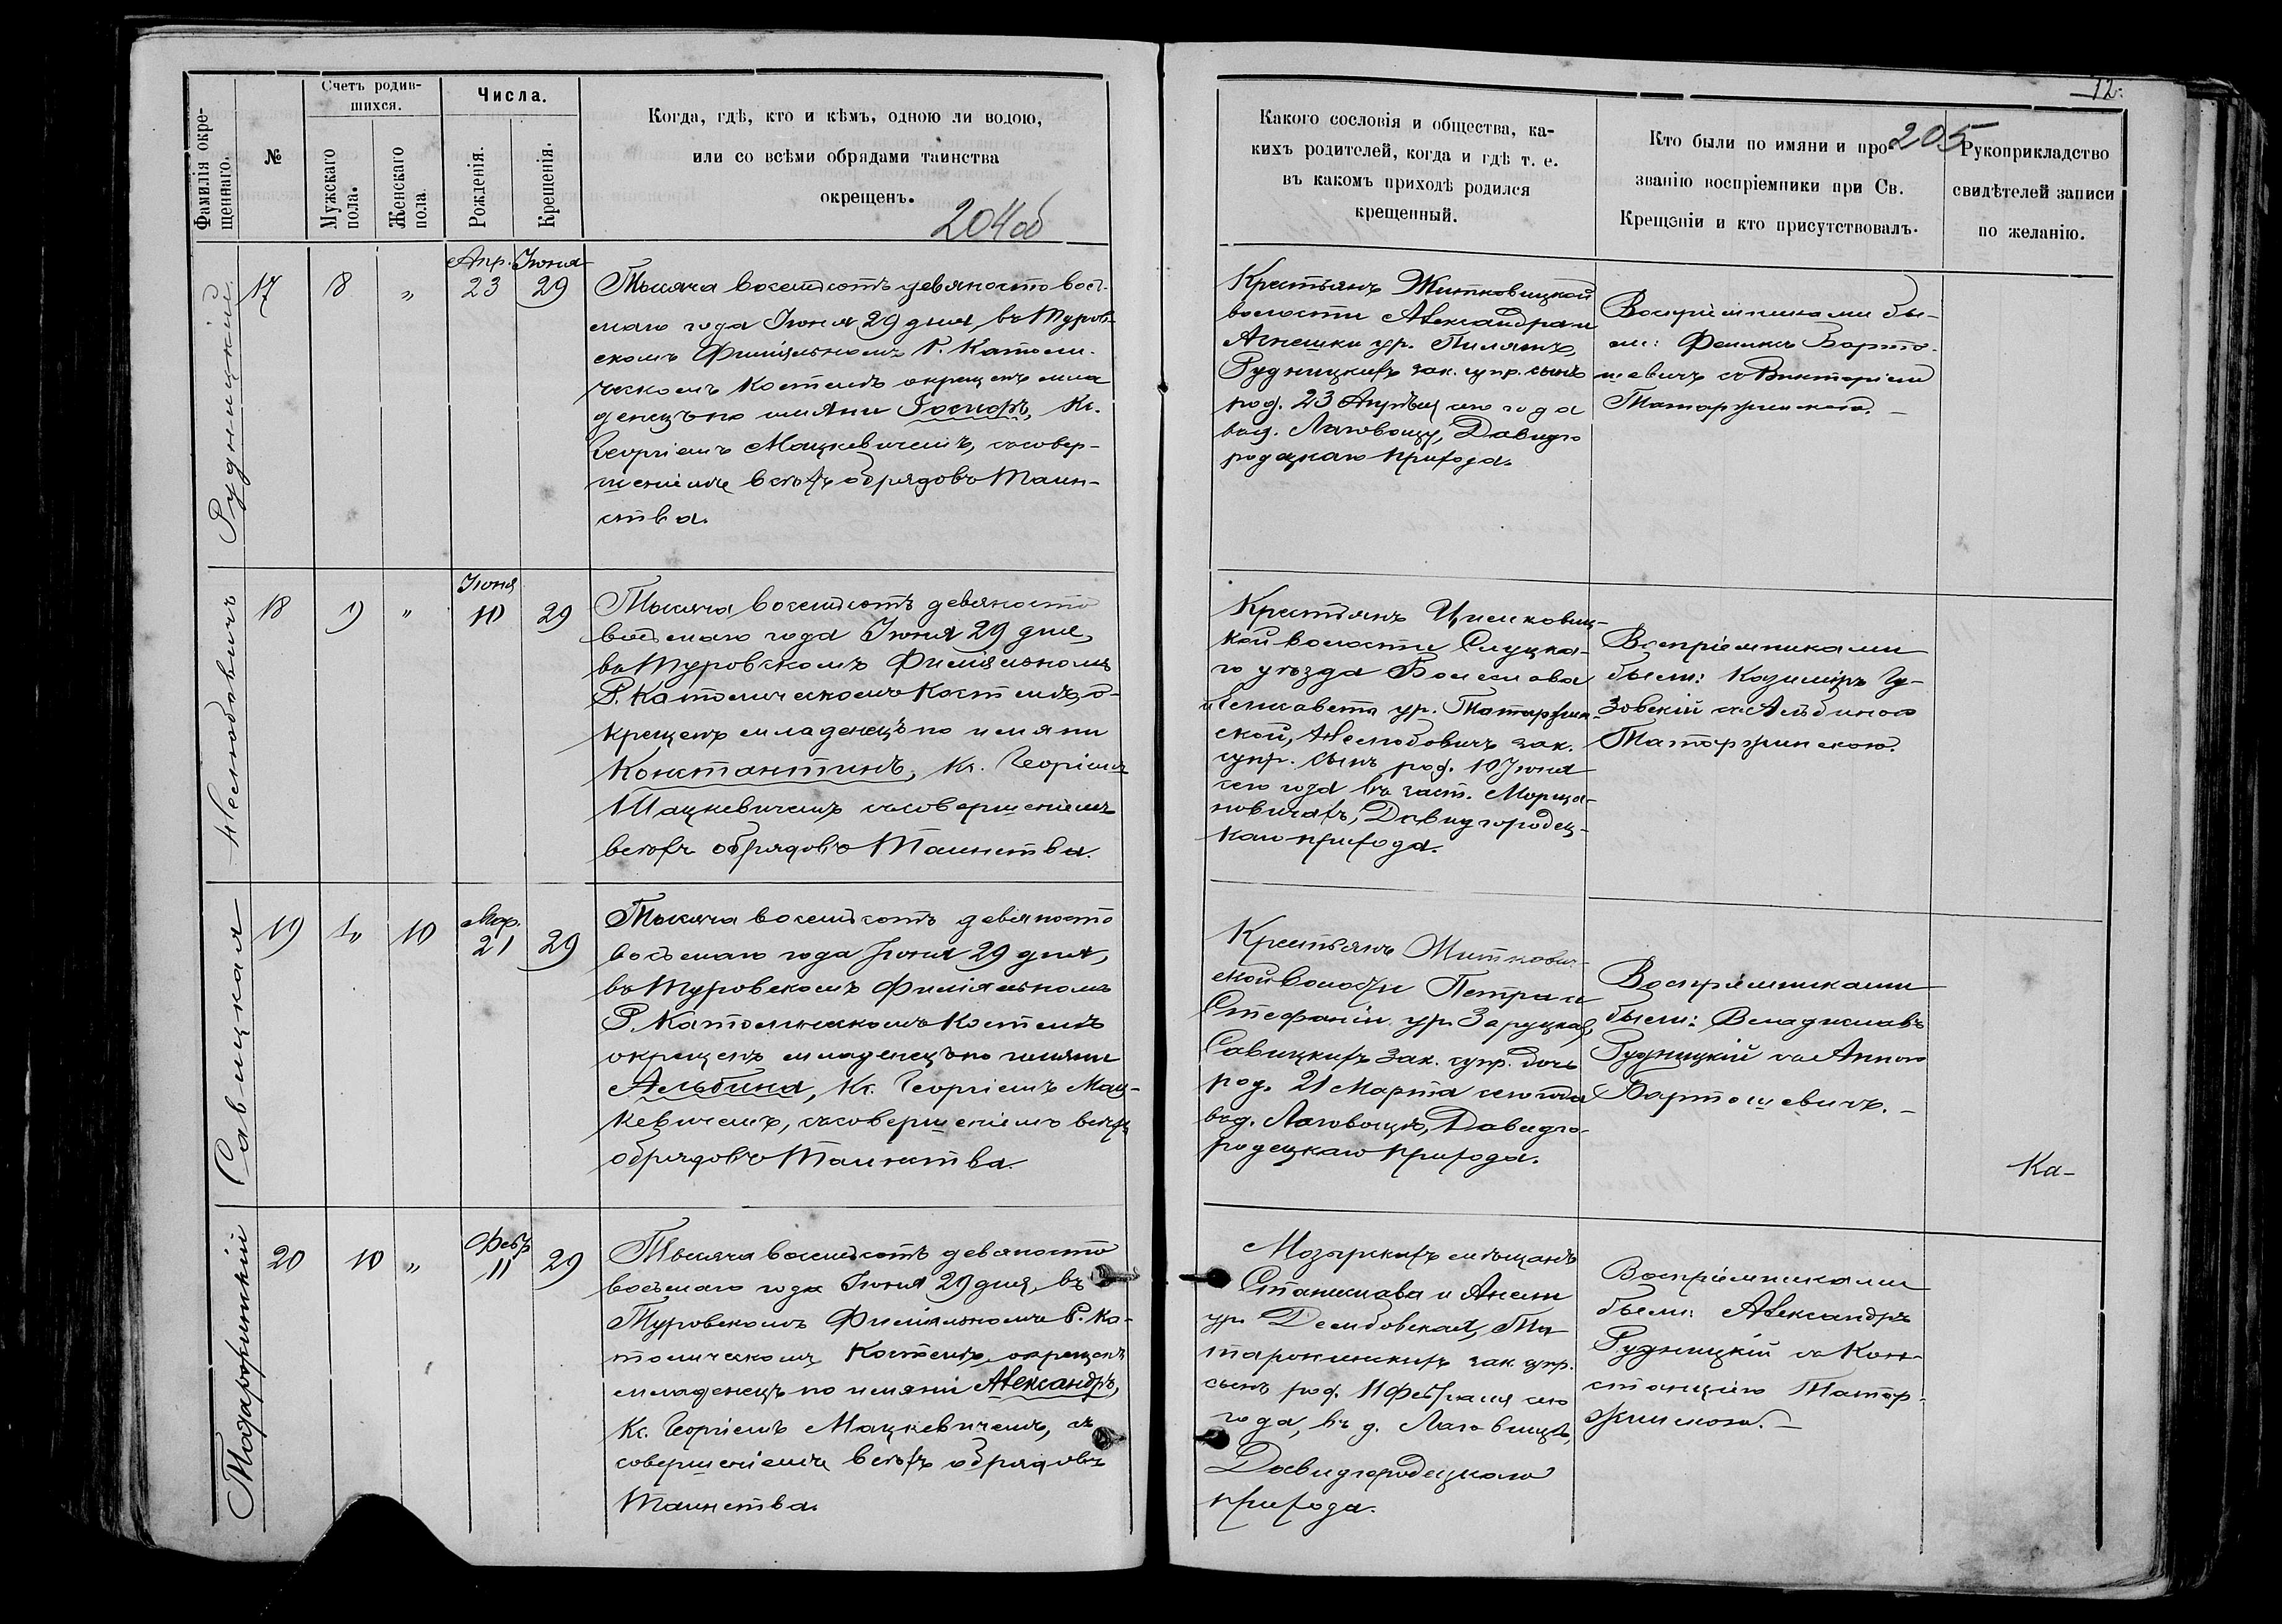 Фамилія окре-
щеннаго.
№
Счетъ родив-
шихся.
Мужскаго
пола.
Женскаго
пола
Числа.
Рожденія.
Крещенія.
Когда, гдѣ, кто и кѣмъ, одною ли водою,
или со всѣми обрядами таинства
окрещенъ.
204об
12.
205
Какого сословія и общества, ка-
кихъ родителей, когда и гдѣ т. е.
въ какомъ приходѣ родился
крещенный.
Кто были по имяни и про-
званію воспріемники при Св.
Крещеніи и кто присутствовалъ.
Рукоприкладство
свидѣтелей записи
по желанію.
Рудницкій
17
8
"
Апр.
23
Іюня
29
Тысяча восемьсотъ девяносто вось-
маго года Іюня 29 дня, въ Туров-
скомъ Филіяльномъ Р. Католи-
ческомъ Костелѣ окрещенъ мла
денецъ по имяни Іосифъ, Кс.
Георгіемъ Мацкевичемъ, съ совер-
шеніемъ всѣхъ обрядовъ Таин-
ства.
Крестьянъ Житковицкой
волости Александра и
Агнешки ур. Пилятъ,
Рудницкихъ зак. супр. сынъ
род. 23 Апрѣля сего года
въ д. Лаговощу, Давидго
родецкаго прихода.
Воспріемниками бы-
ли: Феликсъ Барто-
шевичъ съ Викторіею
Татаржинскою. —
Неслюбовичъ
18
9
"
Іюня
10
29
Тысяча восемьсотъ девяносто
восьмаго года Іюня 29 дня,
въ Туровскомъ Филіяльномъ
Р. Католическомъ Костелѣ, о-
крещенъ младенецъ по имяни
Константинъ, Кс. Георгіемъ
Мацкевичемъ съ совершеніемъ
всѣхъ обрядовъ Таинства.
Крестьянъ Цимковиц-
кой волости Слуцка-
го уѣзда Болеслава
и Елисаветы ур. Татаржин-
ской, Неслюбовичъ зак.
супр. сынъ род. 10 Іюня
сего года въ заст. Морца-
новичахъ, Давидгородец-
каго прихода.
Воспріемниками
были: Казиміръ Гу-
зовскій съ Альбиною
Татаржинскою.
Савицкая
19
"
10
Мар.
21
29
Тысяча восемьсотъ девяносто
восьмаго года Іюня 29 дня,
въ Туровскомъ Филіяльномъ
Р. Католическомъ Костелѣ
окрещенъ младенецъ по имяни
Альбина, Кс. Георгіемъ Мац-
кевичемъ, съ совершеніемъ всѣхъ
обрядовъ Таинства.
Крестьянъ Житкович-
ской волости Петра и
Стефаніи ур. Заруцкая,
Савицкихъ зак. супр. дочь
род. 21 Марта сего года
въ д. Лаговощѣ, Давидго-
родецкаго прихода.
Воспріемниками
были: Владиславъ
Рудницкій съ Анною
Бартошевичъ. —
Ка-
Татаржинскій
20
10
"
Февр
11
29
Тысяча восемьсотъ девяносто
восьмаго года Іюня 29 дня, въ
Туровскомъ Филіяльномъ Р. Ка-
толическомъ Костелѣ, окрещенъ
младенецъ по имяни Александръ,
Кс. Георгіемъ Мацкевичемъ, съ
совершеніемъ всѣхъ обрядовъ
Таинства.
Мозырскихъ мѣщанъ
Станислава и Анели
ур. Дембовская, Та
таржинскихъ зак. супр.
сынъ род. 11 Февраля сего
года, въ д. Лаговищѣ,
Давидгородецкаго
прихода.
Воспріемниками
были: Александръ
Рудницкій съ Кон-
станціею Татар-
жинскою. —